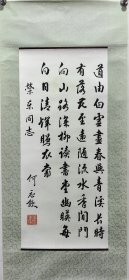 道由白雲盡春與青溪長時
有落花至遠隨流水香閒門
向山路深柳讀書堂幽映每
白日清輝照衣裳
同志
何應欽